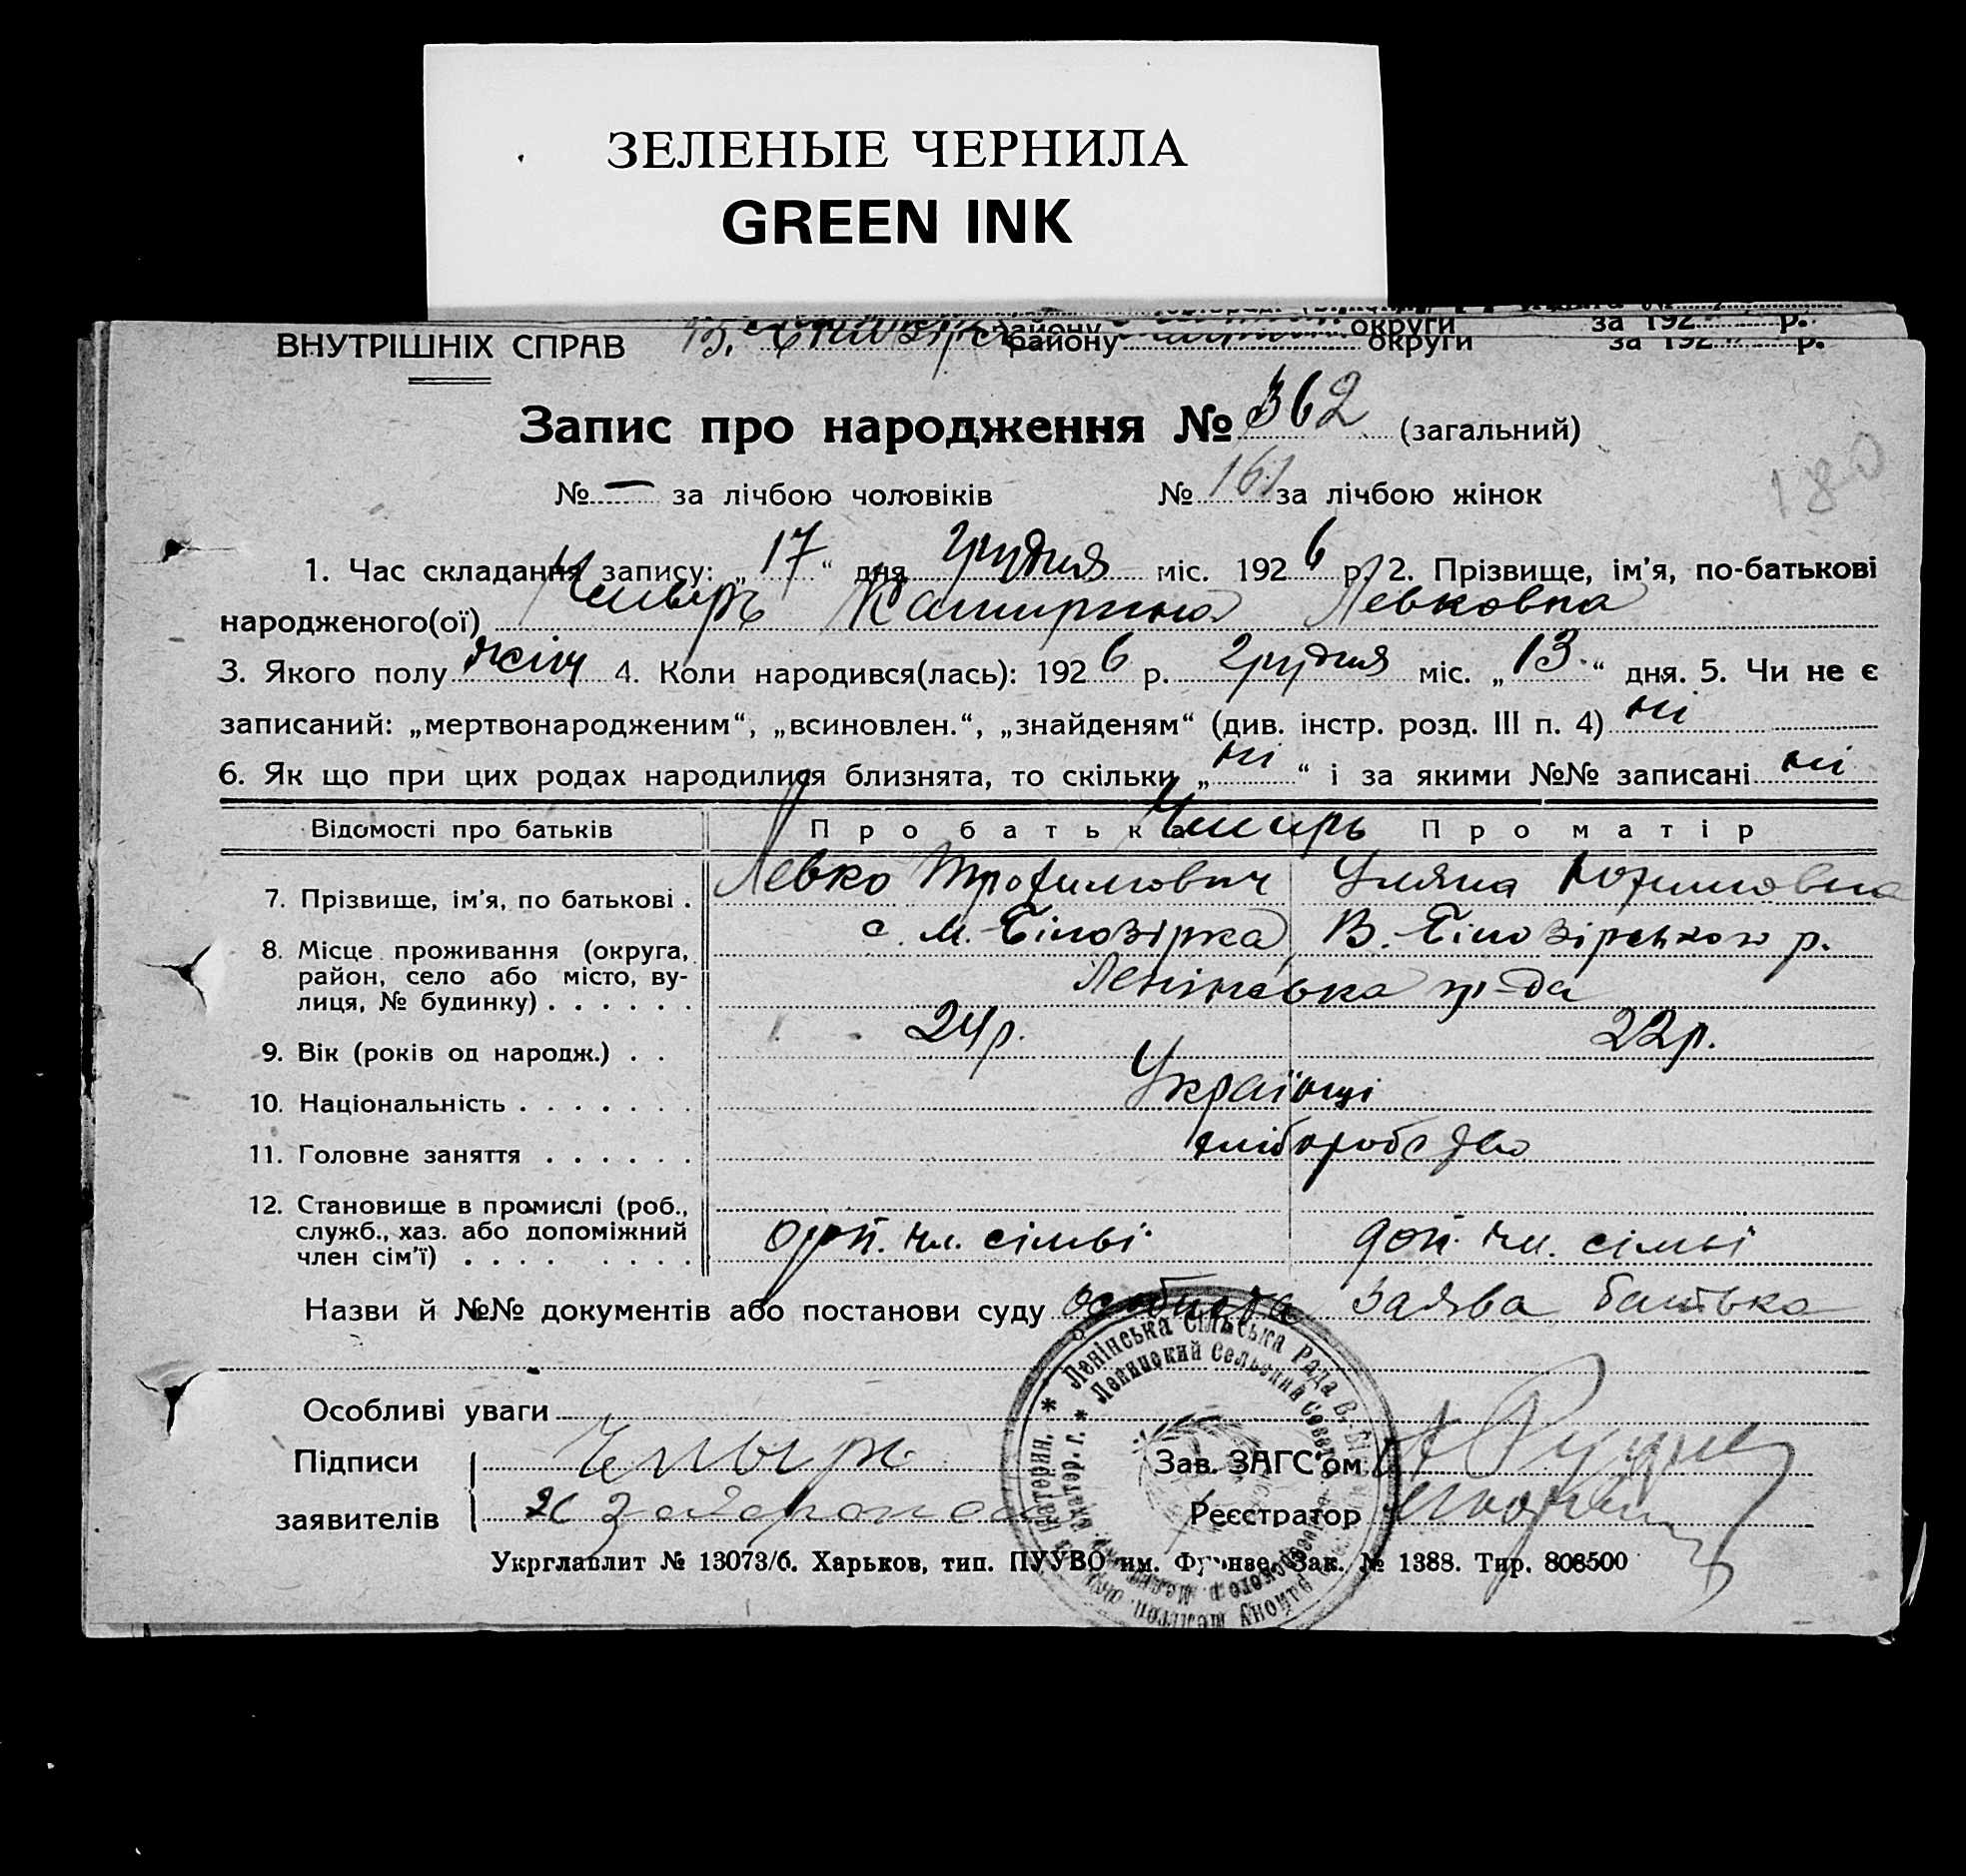 ЗЕЛЕНЫЕ ЧЕРНИЛА
GREEN INK
округи за 192 р.
ВНУТРІШНІХ СПРАВ В. району округи за 192 р.
Запис про народження № 362 (загальний)
180
№ — за лічбою чоловіків № 161 за лічбою жінок
1. Час складання запису: „17“ дня грудня міс. 1926 р. 2. Прізвище, ім’я, по-батькові
народженого(ої) Чмырь Катирина Левковна
3. Якого полу жіноч 4. Коли народився(лась): 1926 р. грудня міс. „13“ дня. 5. Чи не є
записаний: „мертвонародженим“, „всиновлен.“, „знайденям“ (див. інстр. розд. III п. 4) ні
6. Як що при цих родах народилися близнята, то скільки „ні“ і за якими №№ записані ні
Відомості про батьків Про батька Чмирь Про матір
7. Прізвище, ім’я, по батькові . Левко Трофимович Уляна
8. Місце проживання (округа, с. М. Білозірка В. Білозірського р.
район, село або місто, ву-
лиця, № будинку) . . . . . . Ленінська
9. Вік (років од народж.) . . 24р. 22р.
10. Національність . . . . . . . Українці
11. Головне заняття . . . . . . хліборобство
12. Становище в промислі (роб.,
служб., хаз. або допоміжний
член сім’ї) . . . . . . . . доп. чл. сімьі доп. чл. сімьі
Назви й №№ документів або постанови суду особиста заява батька
Особливі уваги
Підписи Чмырь Зав. ЗАГС’ом
заявителів Реєстратор
Ленінська Сільська Рада В.-Бі
Ленинский Сельский Совет
Укрглавлит № 13073/б. Харьков, тип. ПУУВО им. Фрунзе. Зак. № 1388. Тир. 808500